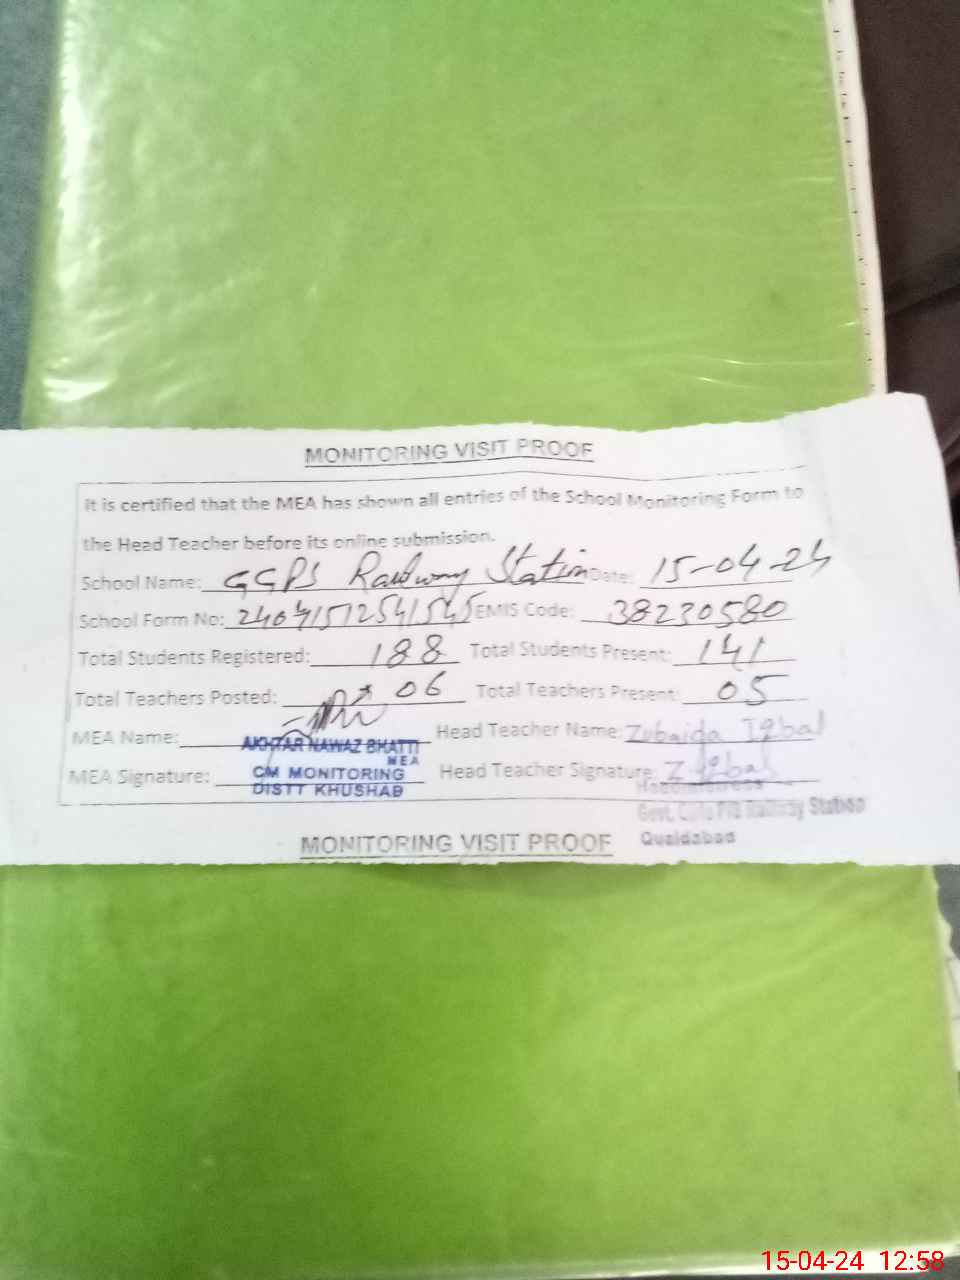 MONITORING VISIT PROOF
It is certified that the MEA has shown all entries of the School Monitoring Form to
the Head Teacher before its online submission.
School Name: GGPS Railway Station Date: 15-04-24
School Form No: 24041512541545 EMIS Code: 38230580
Total Students Registered: 188 Total Students Present: 141
Total Teachers Posted: 06 Total Teachers Present: 05
MEA Name: Head Teacher Name: Zubaida Iqbal
AKHTAR NAWAZ BHATTI
MEA
MEA Signature: CM MONITORING Head Teacher Signature: Z. Iqbal
DISTT KHUSHAB
Headmistress
Govt. Girls P/S Railway Station
Quaidabad
MONITORING VISIT PROOF
15-04-24 12:58